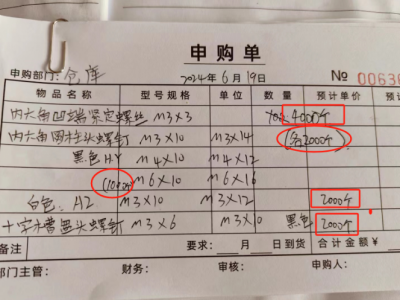 申购单
申购部门：仓库 2024年6月19日 № 00636
物品名称 型号规格 单位 数量 预计单价
内六角凹端紧定螺丝 M3×3 4000个
内六角圆柱头螺钉 M3×10 M3×14 (各2000个)
黑色 M4×10 M4×12
M6×10 M6×16
白色 A2 M3×10 M3×12 2000个
十字槽盘头螺钉 M3×6 M3×10 黑色 2000个
备注 要求： 月 日到货 合计金额 ¥
部门主管： 财务： 审核： 申购人：